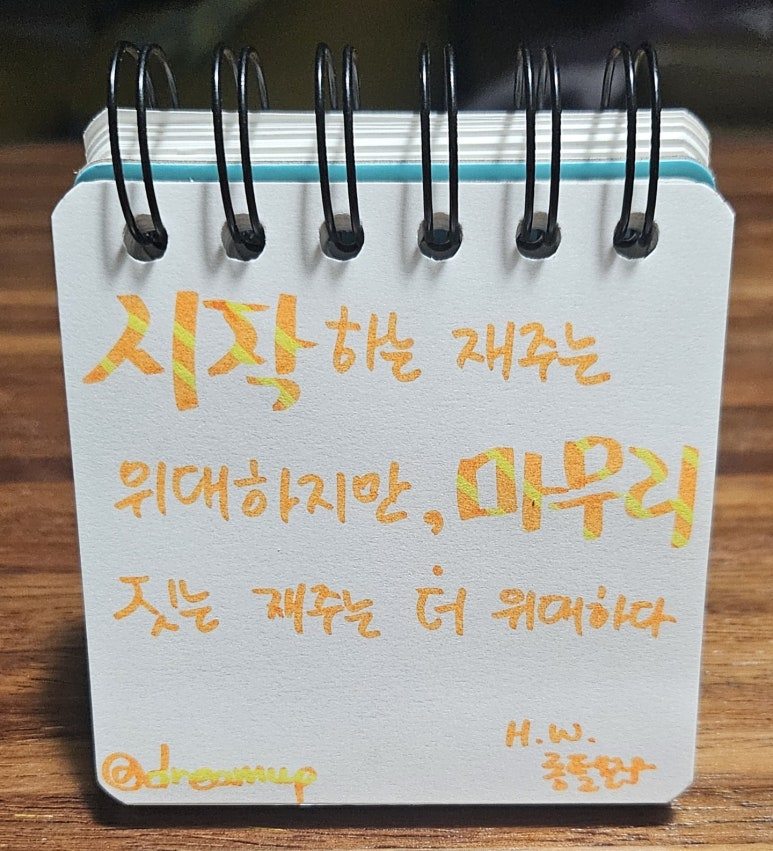 시작하는 재주는
위대하지만, 마무리
짓는 재주는 더 위대하다
H.W.
롱펠로우
@dreamup